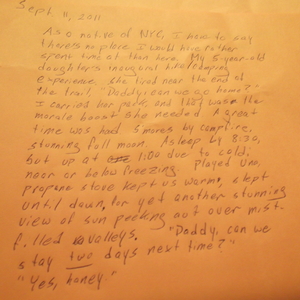 Sept 11, 2011
As a native of NYC, I have to say
there's no place I would have rather
spent time at than here. My 5-year-old
daughter's inaugural hike/camping
experience, she tired near the end of
the trail, "Daddy, can we go home?"
I carried her pack, and that was the
morale boost she needed. A great
time was had. S'mores by campfire,
stunning full moon. Asleep by 8:30,
but up at 1:00 due to cold,
near or below freezing. Played Uno,
propane stove kept us warm, slept
until dawn, for yet another stunning
view of sun peeking out over mist-
filled valleys. "Daddy, can we
stay two days next time?"
"Yes, honey."